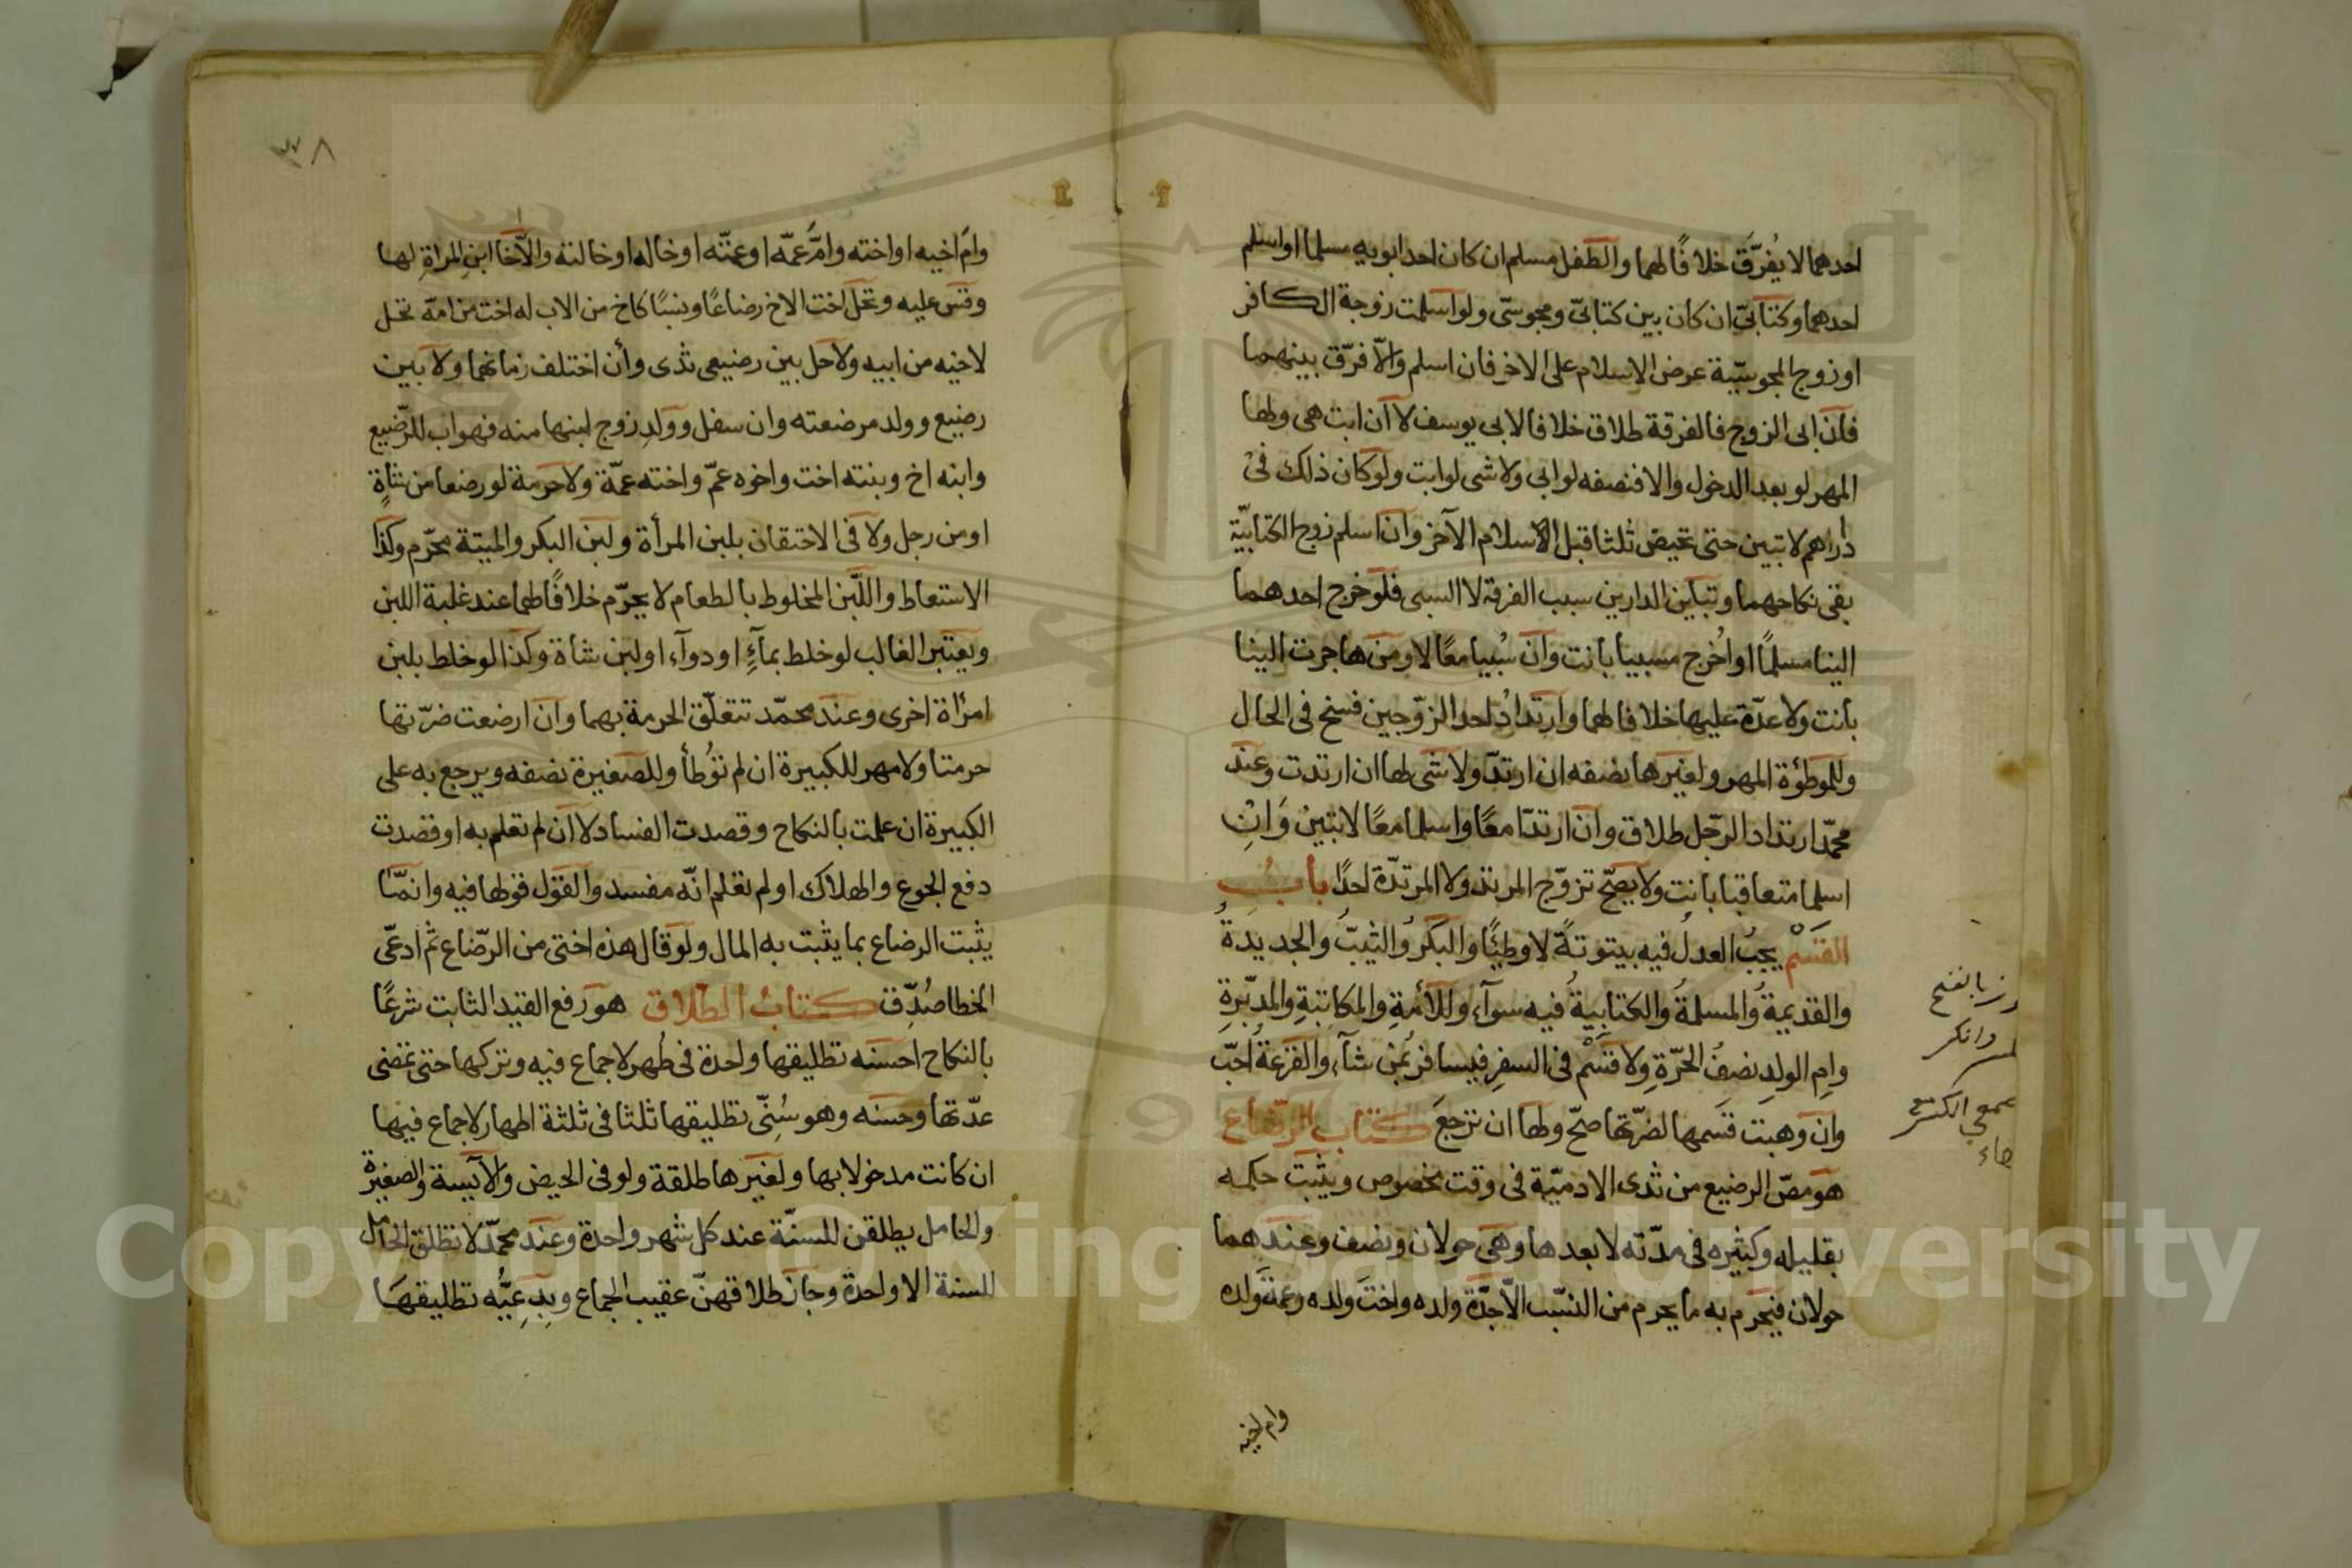 احدهما لا يُفرّق خلافًا لهما والطفل مسلم ان كان احد ابويه مسلما او اسلم
احدهما وكتابيّ ان كان بين كتابيّ ومجوسيّ ولو اسلمت زوجة الكافر
او زوج المجوسيّة عرض الاسلام على الاخر فان اسلم والّا فرّق بينهما
فان ابى الزوج فالفرقة طلاق خلافا لابى يوسف لا ان ابت هى ولها
المهر لو بعد الدخول والا فنصفه لو ابى ولا شى لو ابت ولو كان ذلك فى
دارهم لا تبين حتى تحيض ثلثا قبل الاسلام الآخر وان اسلم زوج الكتابيّة
بقى نكاحهما وتباين الدارين سبب الفرقة لا السبى فلو خرج احدهما
الينا مسلمًا او اُخرج مسبيا بانت وان سُبيا معًا لا ومن هاجرت الينا
بانت ولا عدّة عليها خلافا لهما وارتدادُ احد الزّوجين فسخ فى الحال
وللموطؤة المهر ولغيرها نصفه ان ارتدّ ولا شى لها ان ارتدت وعند
محمّد ارتداد الرّجل طلاق وان ارتدّا معًا واسلما معًا لا تبين وَان
اسلما متعاقبا بانت ولا يصحّ تزوّج المرتد ولا المرتدّة احدًا بابُ
القسْم يجبُ العدل فيه بيتوتةً لا وطئًا والبكرُ والثيبُ والجديدةُ
والقديمةُ والمسلمةُ والكتابيةُ فيه سوآء وللأمةِ والمكاتبةِ والمدبّرةِ
وام الولدِ نصفُ الحرّةِ ولا قسْم فى السفرِ فيسافرُ بمن شآء والقرعةُ احبّ
وان وهبت قسَمها لضرّتها صحّ ولها ان ترجعَ كتاب الرّضاع
هو مصّ الرضيع من ثدى الادميّة فى وقت مخصوص ويثبت حكمه
بقليله وكثيره فى مدّته لا بعدها وهى حولان ونصف وعندهما
حولان فيحرم به ما يحرم من النسب الّا جدّة ولده واخت ولده وعمة ولده
وام اخيه
بالفتح
وام اخيه او اخته وامّ عمّه او عمّته او خاله او خالته والّا اخا ابن المراةِ لها
وقس عليه وتحلّ اخت الاخ رضاعًا ونسبًا كاخ من الاب له اخت من امّه تحل
لاخيه من ابيه ولا حل بين رضيعى ثدى وأن اختلف زمانهما ولا بين
رضيع وولد مرضعته وان سفل وولدِ زوج لبنها منه فهو اب للرّضيع
وابنه اخ وبنته اخت واخوه عمّ واخته عمّة ولا حرمة لو رضعا من شاةٍ
او من رجل ولا فى الاحتقان بلبن المرأة ولبن البكر والميتة محرّم وكذا
الاستعاط واللّبن المخلوط بالطعام لا يحرّم خلافًا لهما عند غلبة اللبن
ويعتبر الغالب لو خلط بمآءٍ او دوآء او لبن شاة وكذا لو خلط بلبن
امرأة اخرى وعند محمّد تتعلّق الحرمة بهما وان ارضعت ضرّتها
حرمتا ولا مهر للكبيرة ان لم تؤُطأ وللصغيرة نصفه ويرجع به على
الكبيرة ان علمت بالنكاح وقصدت الفساد لا ان لم تعلم به او قصدت
دفع الجوع والهلاك او لم تعلم انّه مفسد والقول قولها فيه وانمّا
يثبت الرضاع بما يثبت به المال ولو قال هذه اختى من الرّضاع ثم ادعّى
الخطا صُدِّق كتابُ الطّلاق هو رفع القيد الثابت شرعًا
بالنكاح احسنه تطليقها واحدة فى طُهر لا جماع فيه وتركها حتى تمضى
عدّتها وحسنه وهو سُنّى تطليقها ثلثا فى ثلثة اطهار لا جماع فيها
ان كانت مدخولا بها ولغيرها طلقة ولو فى الحيض والآيسة والصغيرة
والحامل يطلقن للسنّة عند كل شهر واحدة وعند محمّد لا تطلق الحامل
للسنة الا واحدة وجاز طلاقهنّ عقيب الجماع وبِدعيُّه تطليقهَا
٣٨
Copyright © King Saud University